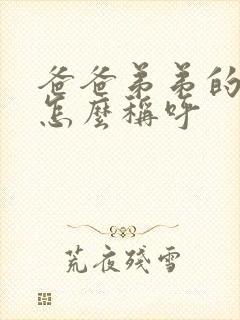 爸爸弟弟的
怎麼稱呼
荒夜殘雪